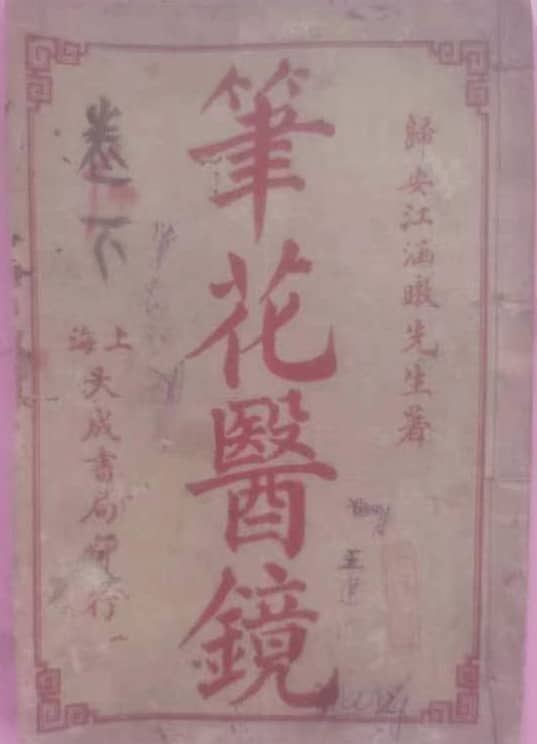 歸安江涵暾先生著
筆花醫鏡
上海
大成書局印行
卷一